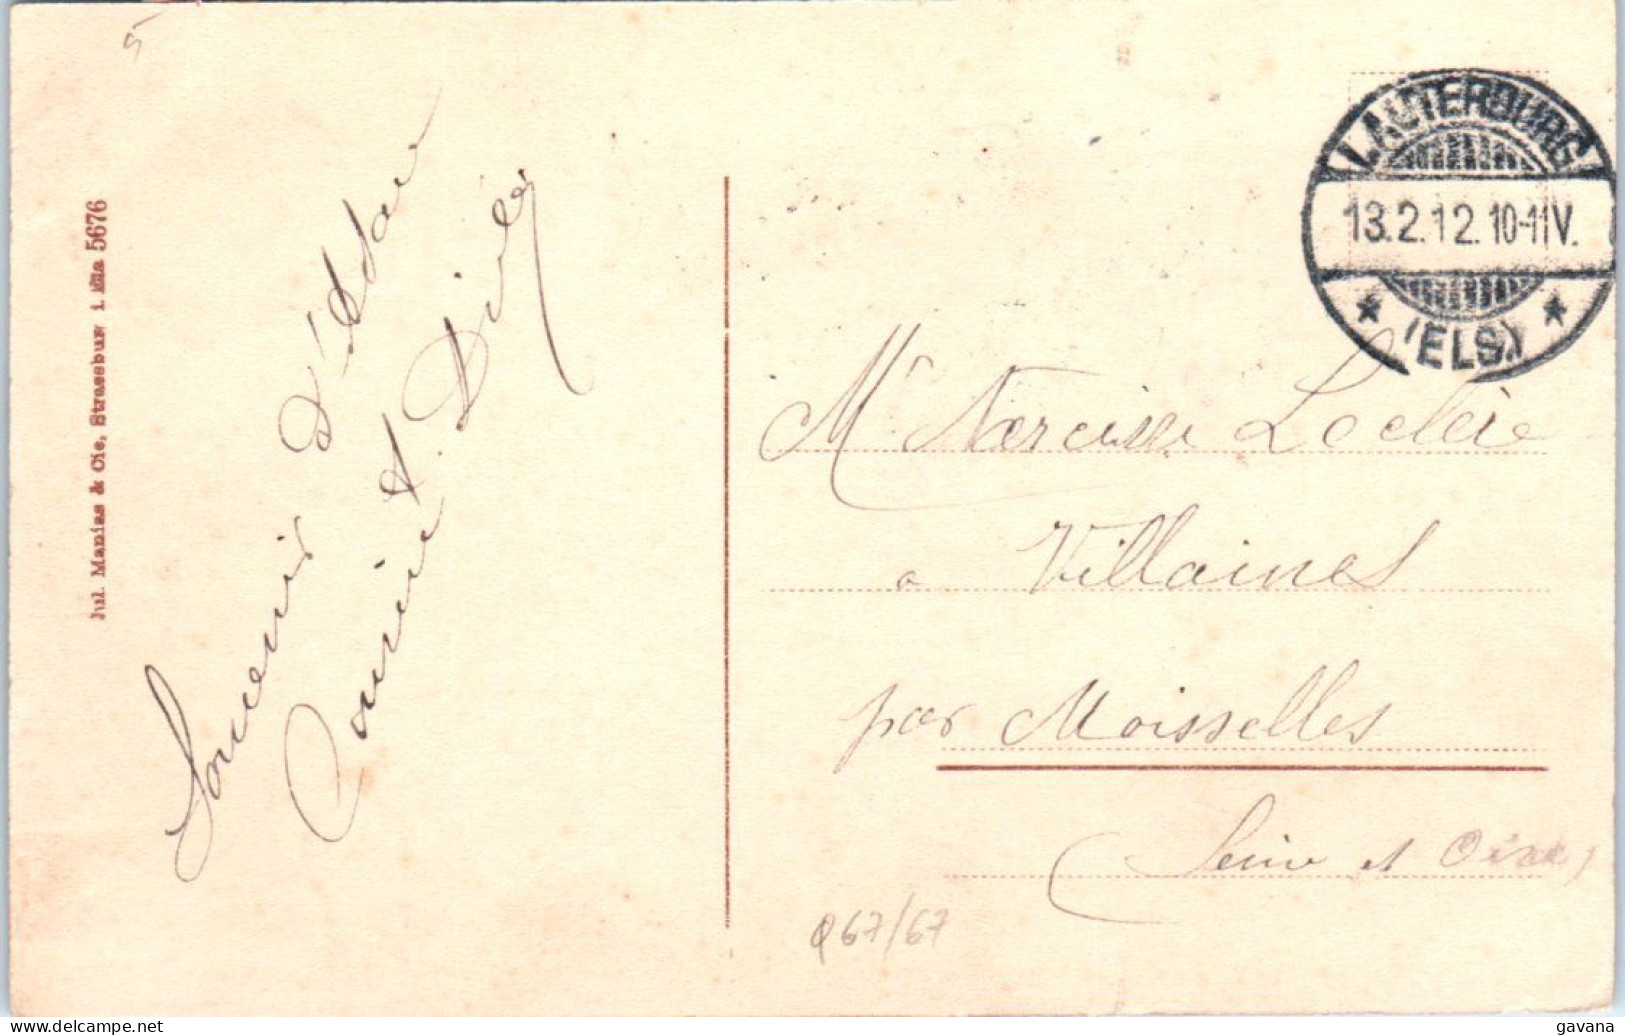 Jul. Manias & Cie, Strassburg i. Els 5676
Souvenir d'
LAUTERBURG
13.2.12. 10-11V.
* (ELS.) *
Mr Narcisse Leclère
a Villaines
par Moisselles
(Seine et Oise)
Q67/67
www.delcampe.net
gavana